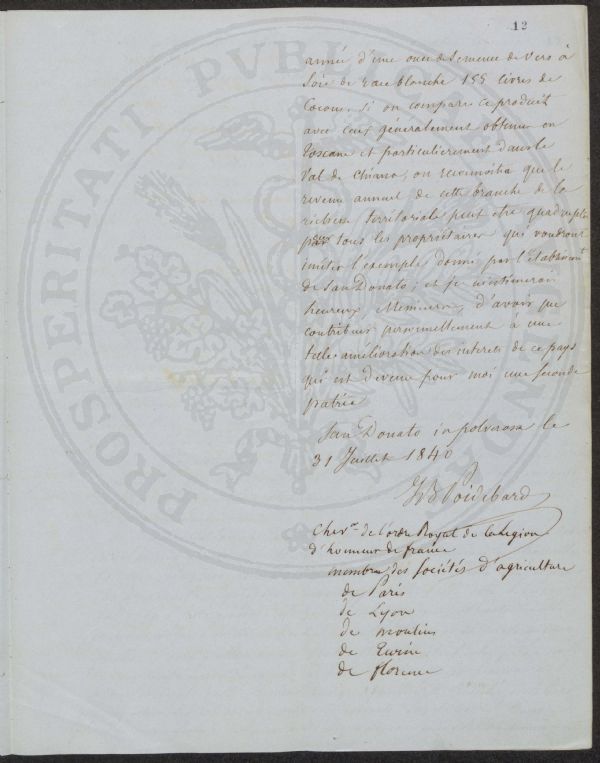 12
année d'une once de Semence de Vers à
Soie de race blanche 155 livres de
Cocons. Si on compare ce produit
avec ceux généralement obtenu en
Toscane et particulierement dans le
Val de Chiana, on reconnoitra que le
revenu annuel de cette branche de la
richesse territoriale peut etre quadruplé
par tous les propriétaires qui voudront
imiter l'exemple donné par l'établissement
de San Donato; et je m'estimerai
heureux, Messieurs, d'avoir pu
contribuer personnellement a une
telle amélioration des interets de ce pays
qui est devenu pour moi une seconde
patrie
San Donato in polverosa le
31 Juillet 1840
JB Poidebard
Chevr. de l'ordre Royal de la Legion
d'honneur de france
membre des Sociétés d'agriculture
de Paris
de Lyon
de moulins
de Turin
de florence
PROSPERITATI PVBLICAE